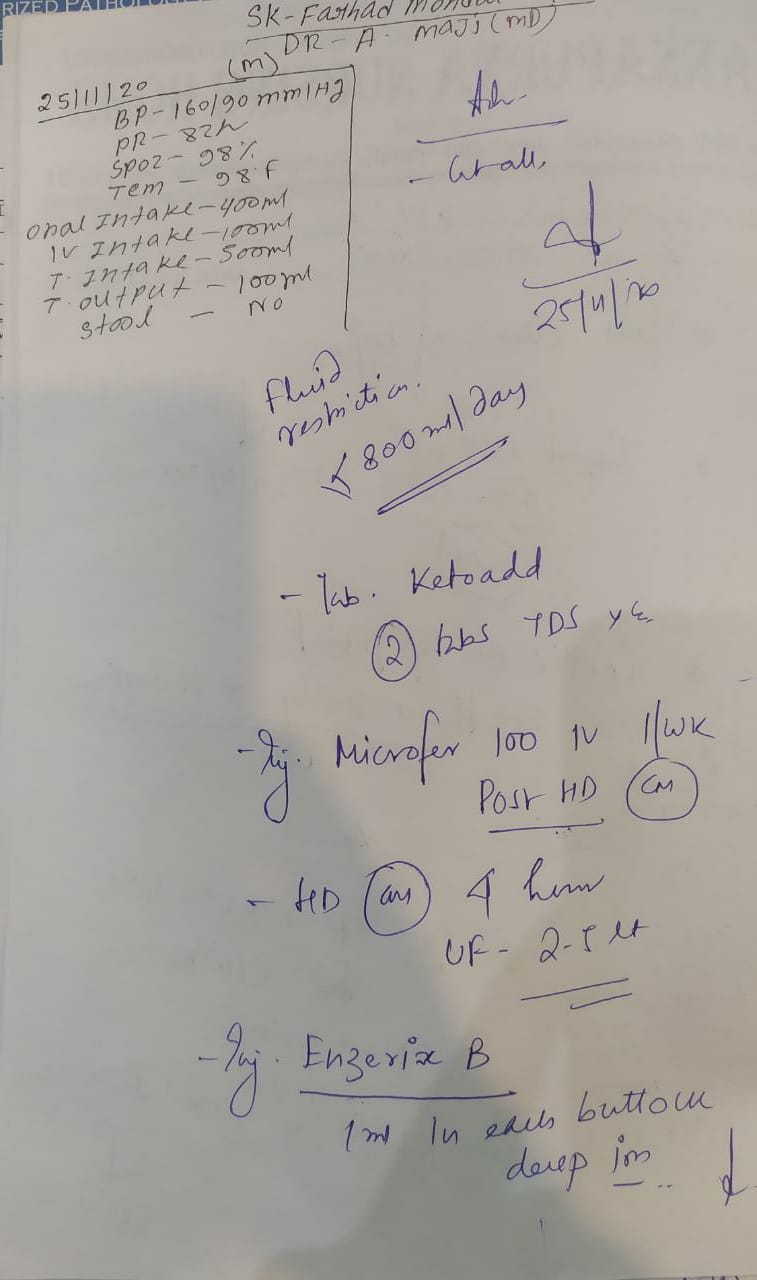 RIZED PATHOLO
SK-Farhad Mondal
DR-A. MAJI (MD)
(M)
25/11/20
BP-160/90 mm/Hg
PR-82/m
SPO2-98%
Tem - 98°F
Oral Intake-400ml
IV Intake-100ml
T. Intake-500ml
T. output - 100ml
Stool - NO
Adv.
25/11/20
Fluid
restriction.
< 800 ml/day
- Tab. Ketoadd
2 tabs TDS
- Inj. Microfer 100 IV 1/WK
Post HD CM
- HD CM 4 hour
UF - 2.5 lt
- Inj. Enzerix B
1 ml in each buttock
deep im